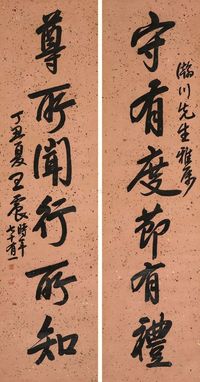 瀚川先生雅屬
守有度節有禮
尊所聞行所知
丁丑夏王震時年七十有一